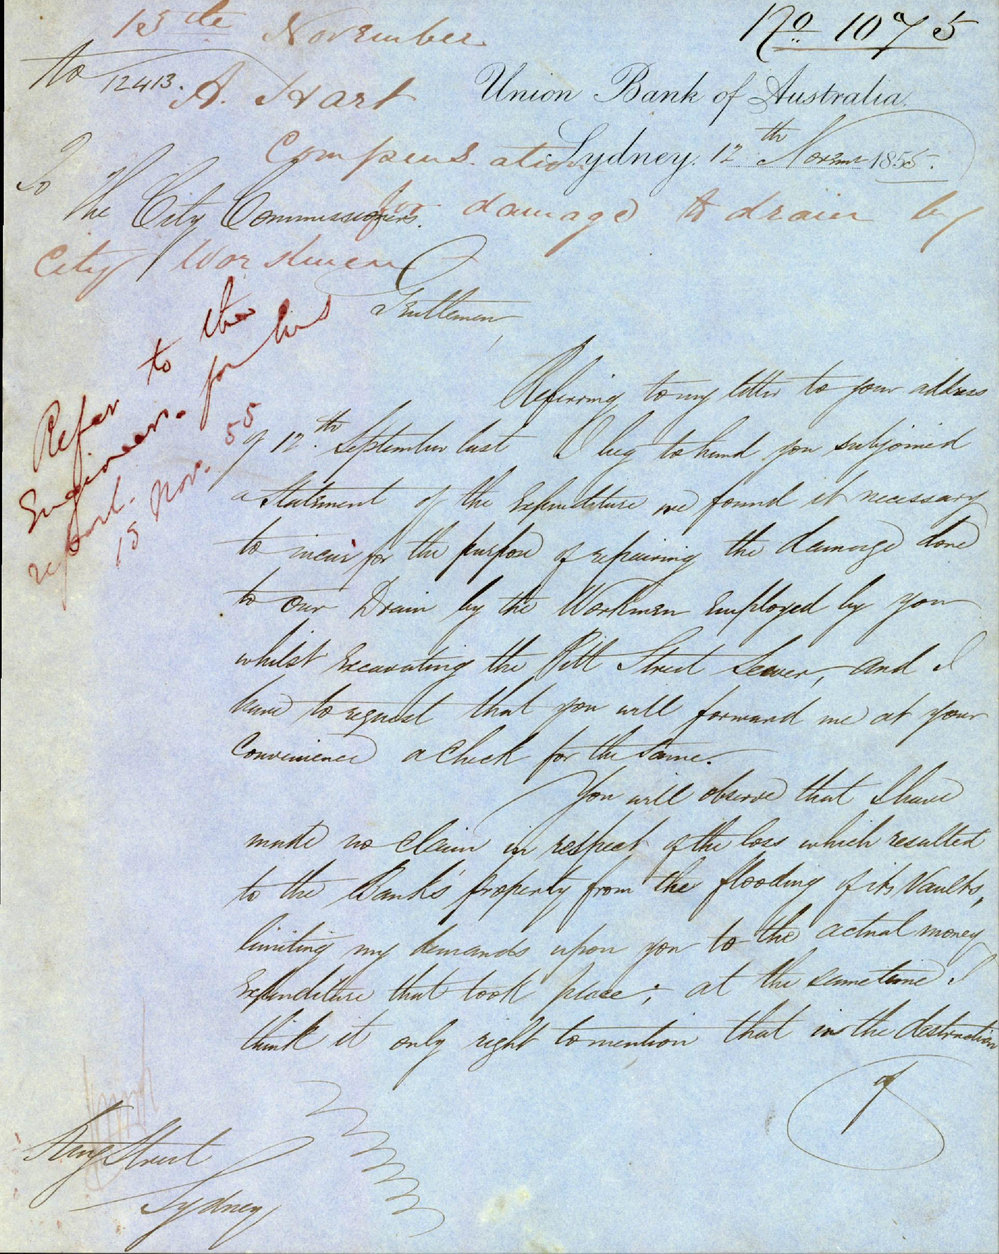 13th November No 1075
to 12413. A. Hart
Union Bank of Australia.
Compensation
Sydney, 12th Novemr 1855.
To The City Commissioners.
for damage to drain by
City Workmen
Gentlemen,
Refer to the
Engineer. for his
report.
13 Nov. 55
Refering to my letter to your address
of 12th September last I beg to hand you subjoined
a Statement of the Expenditure we found it necessary
to incur for the purpose of repairing the damage done
to our Drain by the Workmen Employed by you
whilst Excavating the Pitt Street Sewer, and I
have to request that you will forward me at your
Convenience a Check for the same.
You will observe that I have
made no claim in respect of the loss which resulted
to the Bank's property from the flooding of its Vaults,
limiting my demands upon you to the actual money
Expenditure that took place; at the same time I
think it only right to mention that in the destruction
of
King Street
Sydney